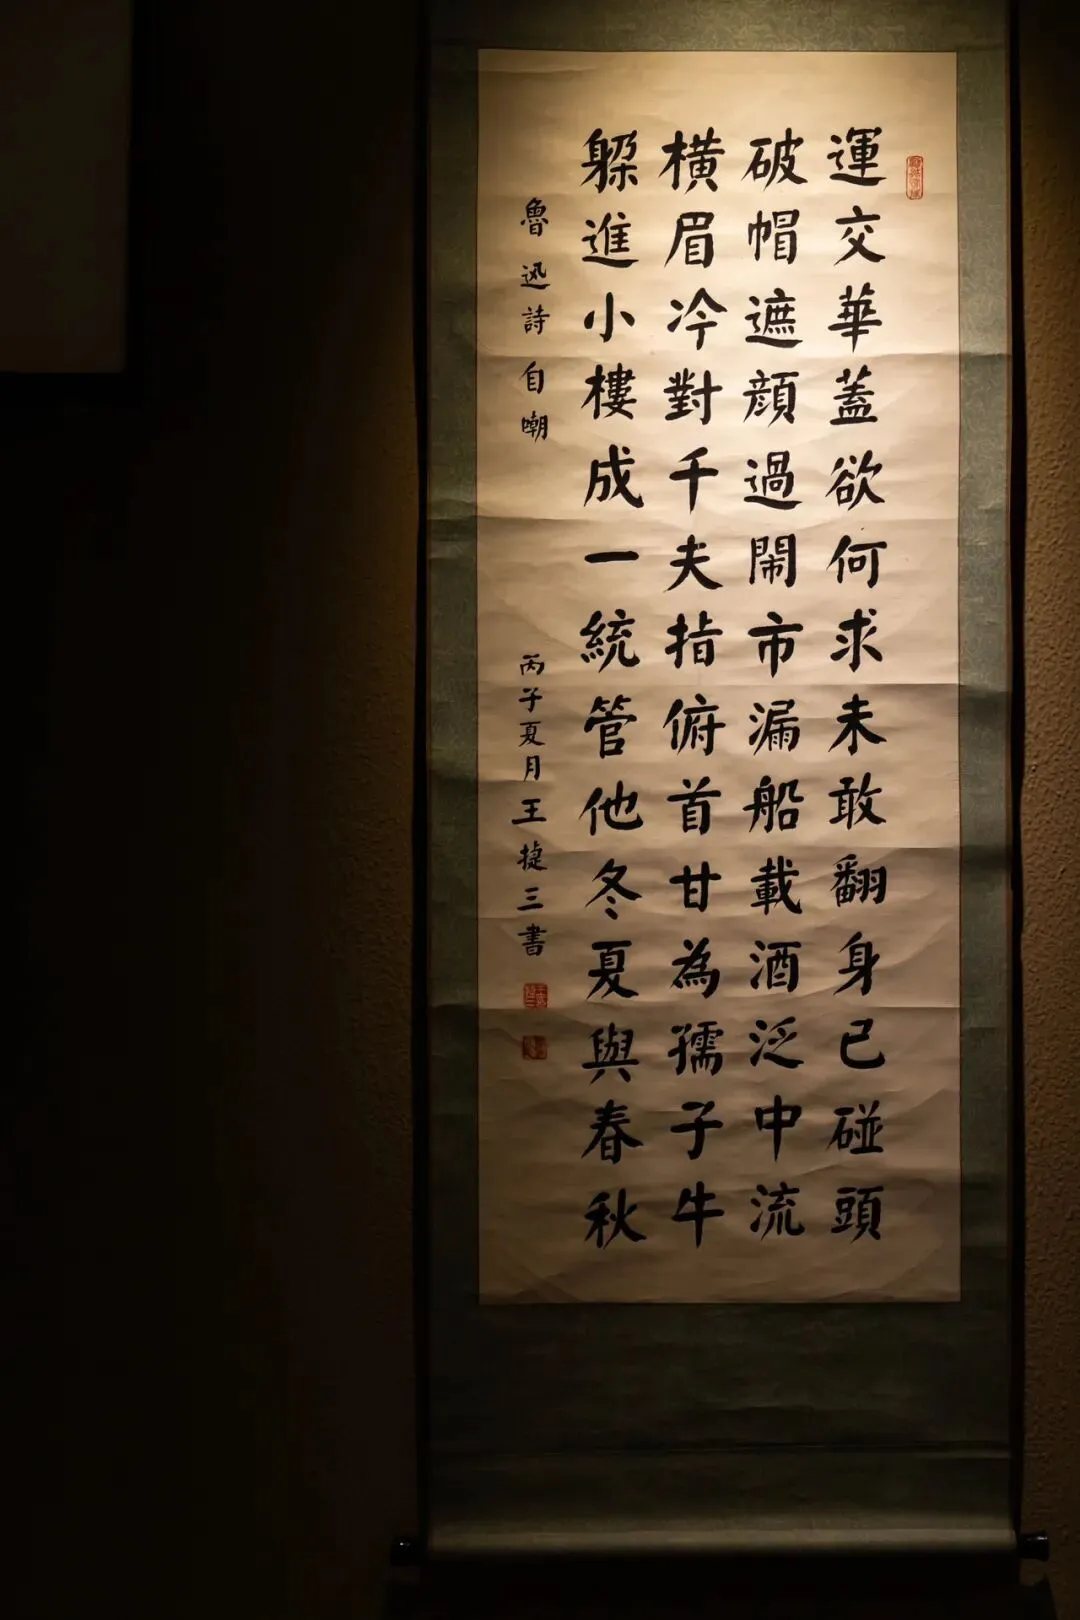 運交華蓋欲何求未敢翻身已碰頭
破帽遮顏過鬧市漏船載酒泛中流
橫眉冷對千夫指俯首甘為孺子牛
躲進小樓成一統管他冬夏與春秋
魯迅詩自嘲
丙子夏月王捷三書